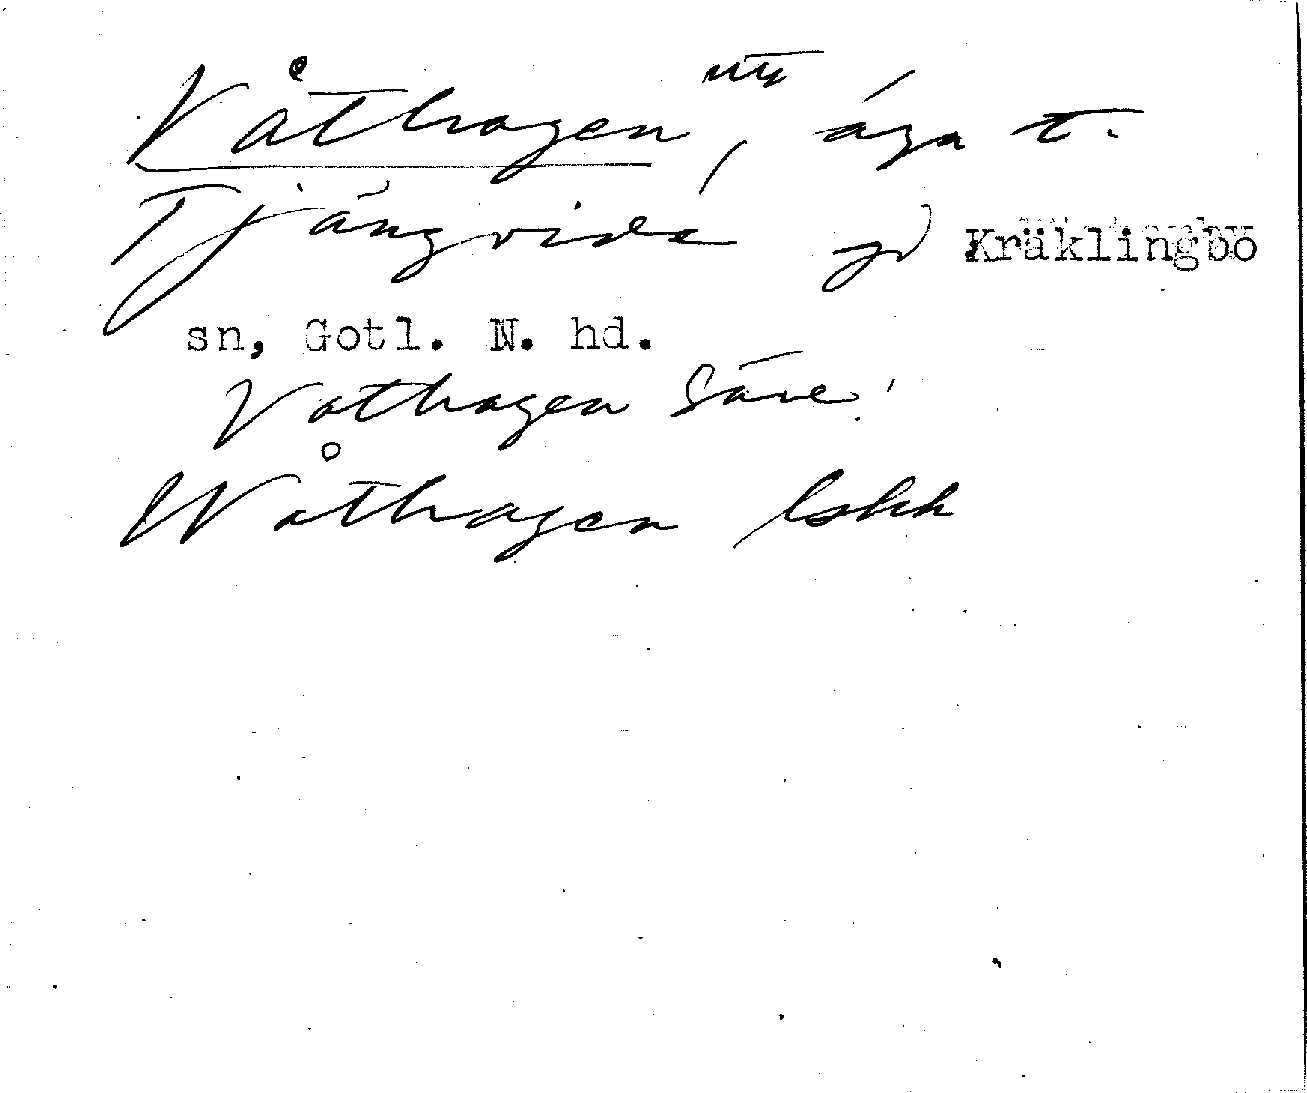 Våthagen, äga t.
Tjängvide gd Kräklingbo
sn, Gotl. N. hd.
Vathagen Säve
Wåthagen lskk